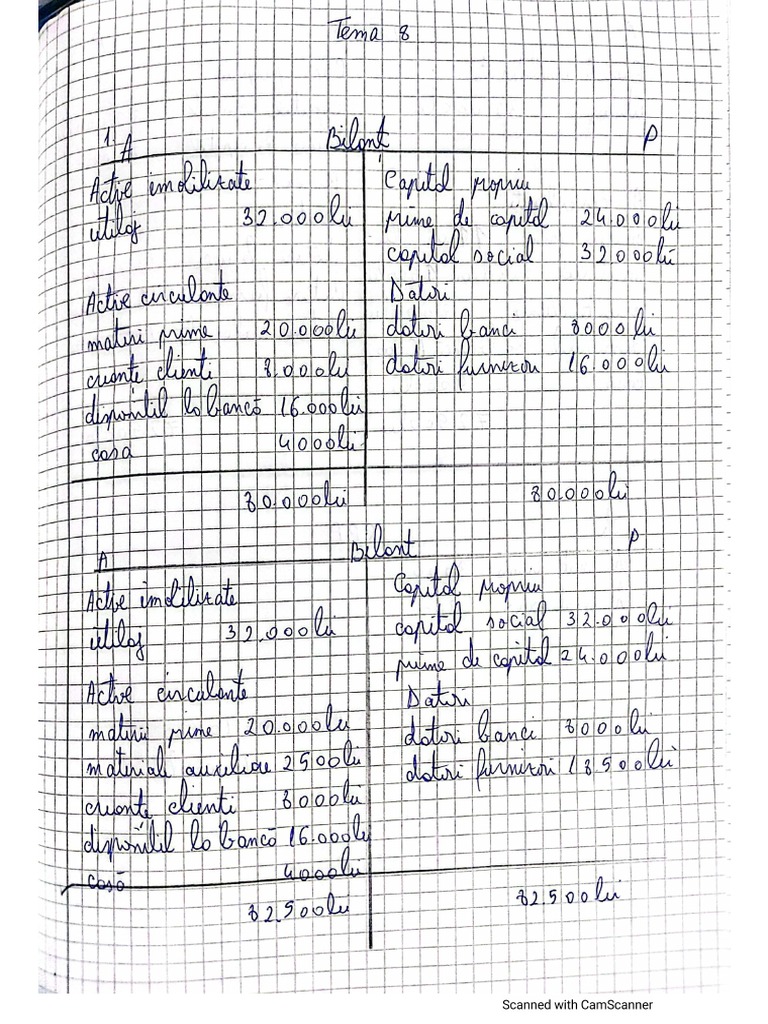 Tema 8
1.
A Bilanț P
Active imobilizate
utilaj 32.000lei
Active circulante
materii prime 20.000lei
creante clienti 8.000lei
disponibil la bancă 16.000lei
casa 4000lei
80.000lei
Capital propriu
prime de capital 24.000lei
capital social 32000lei
Datorii
datorii banci 8000lei
datorii furnizori 16.000lei
80.000lei
A Bilant P
Active imobilizate
utilaj 32.000lei
Active circulante
materii prime 20.000lei
materiale auxiliare 2500lei
creante clienti 8000lei
disponibil la bancă 16.000lei
casă 4000lei
82.500lei
Capital propriu
capital social 32.000lei
prime de capital 24.000lei
Datorii
datorii banci 8000lei
datorii furnizori 18500lei
82.500lei
Scanned with CamScanner